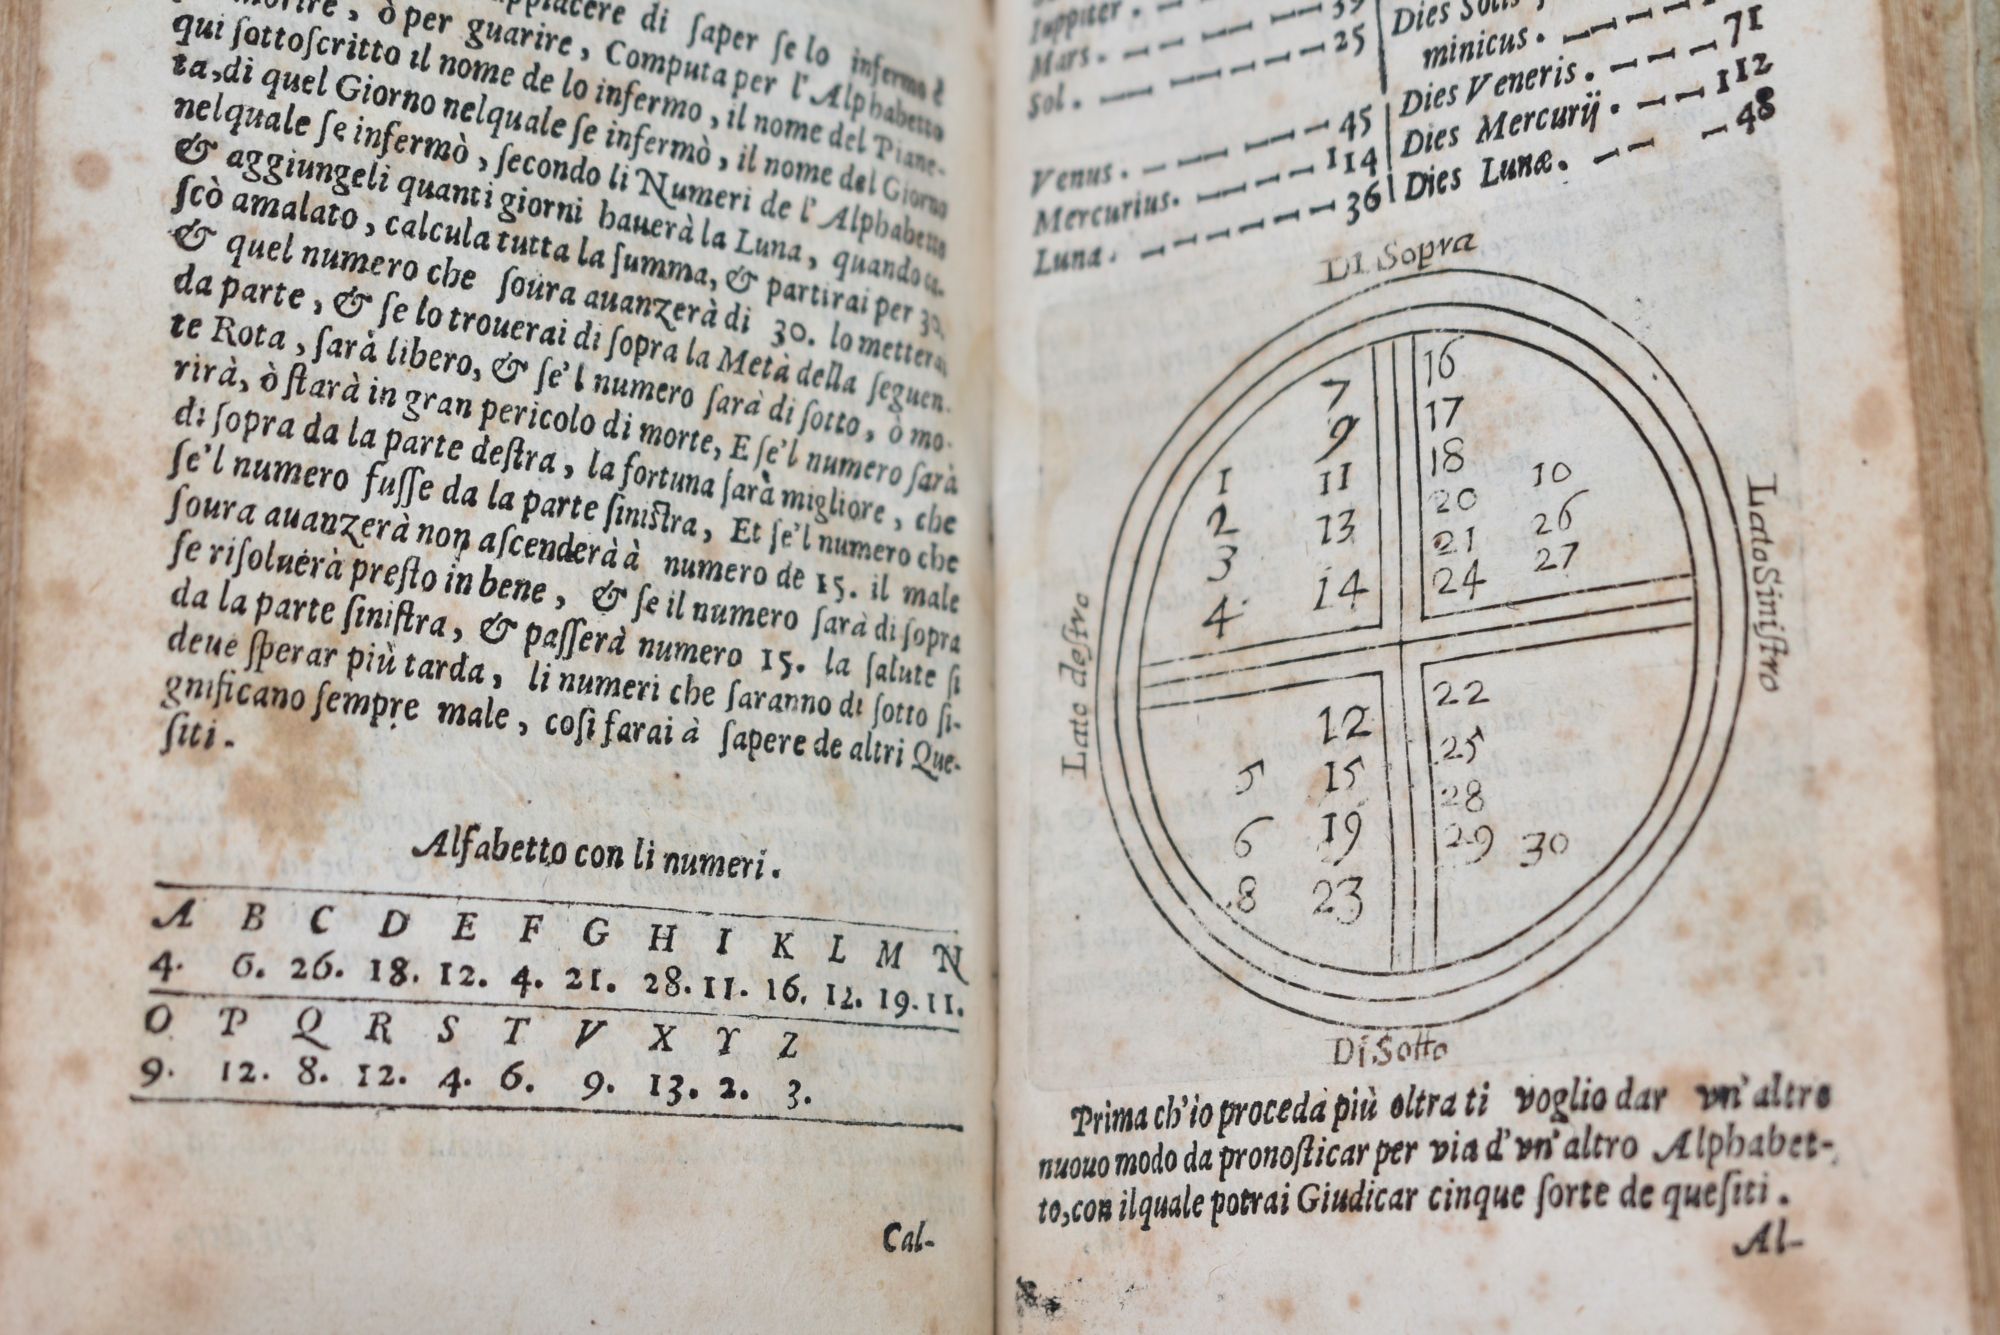 di ſaper ſe lo infermo è
ò per guarire, Computa per l'Alphabetto
qui ſottoſcritto il nome de lo infermo, il nome del Piane-
ta, di quel Giorno nelquale ſe infermò, il nome del Giorno
nelquale ſe infermò, ſecondo li Numeri de l'Alphabetto
& aggiungeli quanti giorni hauerà la Luna, quando ca-
ſcò amalato, calcula tutta la ſumma, & partirai per 30.
& quel numero che ſoura auanzerà di 30. lo metterai
da parte, & ſe lo trouerai di ſopra la Metà della ſeguen-
te Rota, ſarà libero, & ſe'l numero ſarà di ſotto, ò mo-
rirà, ò ſtarà in gran pericolo di morte, E ſe'l numero ſarà
di ſopra da la parte deſtra, la fortuna ſarà migliore, che
ſe'l numero fuſſe da la parte ſiniſtra, Et ſe'l numero che
ſoura auanzerà non aſcenderà à numero de 15. il male
ſe riſoluerà preſto in bene, & ſe il numero ſarà di ſopra
da la parte ſiniſtra, & paſſerà numero 15. la ſalute ſi
deue ſperar più tarda, li numeri che ſaranno di ſotto ſi-
gnificano ſempre male, coſi farai à ſapere de altri Que-
ſiti.
Alfabetto con li numeri.
A B C D E F G H I K L M N
4. 6. 26. 18. 12. 4. 21. 28. 11. 16. 12. 19. 11.
O P Q R S T V X Y Z
9. 12. 8. 12. 4. 6. 9. 13. 2. 3.
Cal-
Iuppiter.
Mars. 
Sol. — — — — 25
Venus. — — — — 45
Mercurius. — — — — 114
Luna. — — — — — 36
Dies
minicus. —
Dies Veneris. — — — 71
Dies Mercurij. — — — 112
Dies Lunæ. — — — 48
Di Sopra
7 16
9 17
1 11 18 10
2 13 20 26
3 21 27
4 14 24
Lato deſtro
Lato Siniſtro
12 22
5 15 25
6 19 28
8 23 29 30
Di Sotto
Prima ch'io proceda più oltra ti voglio dar vn'altro
nuouo modo da pronoſticar per via d'vn'altro Alphabet-
to, con ilquale potrai Giudicar cinque ſorte de queſiti.
Al-